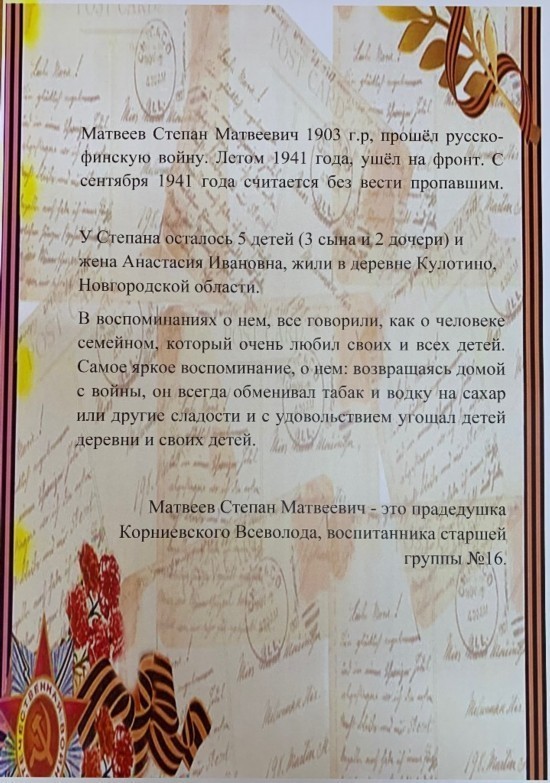 Матвеев Степан Матвеевич 1903 г.р, прошёл русско-
финскую войну. Летом 1941 года, ушёл на фронт. С
сентября 1941 года считается без вести пропавшим.
У Степана осталось 5 детей (3 сына и 2 дочери) и
жена Анастасия Ивановна, жили в деревне Кулотино,
Новгородской области.
В воспоминаниях о нем, все говорили, как о человеке
семейном, который очень любил своих и всех детей.
Самое яркое воспоминание, о нем: возвращаясь домой
с войны, он всегда обменивал табак и водку на сахар
или другие сладости и с удовольствием угощал детей
деревни и своих детей.
Матвеев Степан Матвеевич - это прадедушка
Корниевского Всеволода, воспитанника старшей
группы №16.